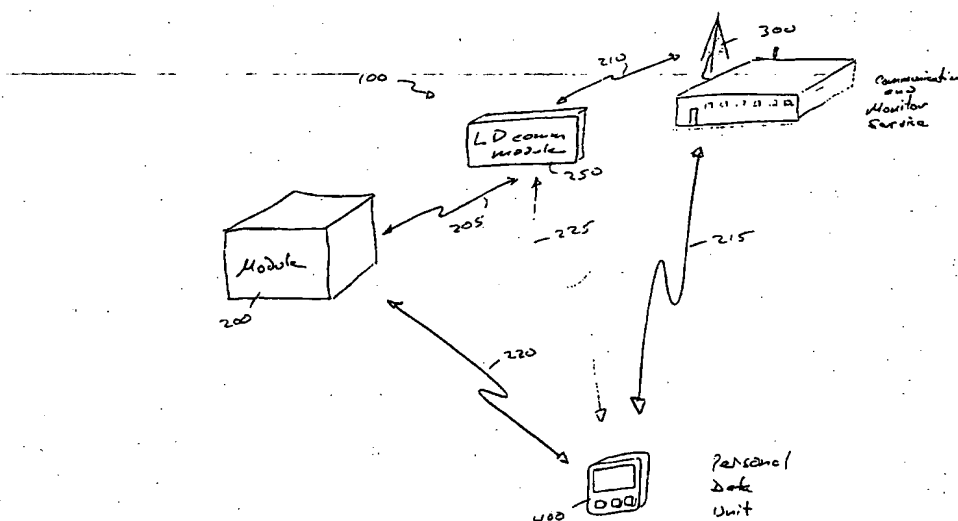 300
210
100
Communication
and
Monitor
Service
LD comm
module
250
205
225
215
Module
200
220
Personal
Data
Unit
400